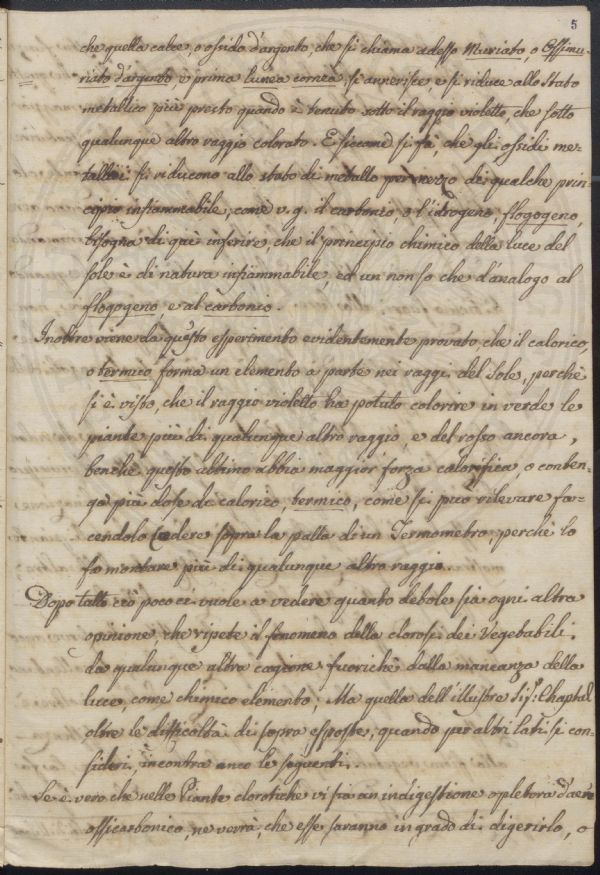 5
che quella calce, o ossido d'argento, che si chiama adesso Muriato, o Ossimu-
riato d'argento, o prima lunea cornea si annerisce, e si riduce allo stato
metallico più presto quando è tenuto sotto il raggio violetto, che sotto
qualunque altro raggio colorato. E siccome si sà, che gli ossidi me-
tallici si riducono allo stato di metallo per mezzo di qualche prin-
cipio infiammabile, come v. g. il carbonio, o l'idrogeno, flogogeno,
bisogna di quì inferire, che il principio chimico della luce del
sole è di natura infiammabile, ed un non so che d'analogo al
flogogeno, e al carbonio.
Inoltre viene da questo esperimento evidentemente provato, che il calorico,
o termico forma un elemento a parte nei raggi del Sole, perchè
si è visto, che il raggio violetto ha potuto colorire in verde le
piante più di qualunque altro raggio, e del rosso ancora,
benchè questo ultimo abbia maggior forza calorifica, o conten-
ga più dose di calorico, termico, come si può rilevare fa-
cendolo cedere sopra la palla di un Termometro, perchè lo
fa montare più di qualunque altro raggio.
Dopo tutto ciò poco ci vuole a vedere quanto debole sia ogni altra
opinione, che ripete il fenomeno della clorosi dei Vegetabili
da qualunque altra cagione fuorichè dalla mancanza della
luce, come chimico elemento; Ma quella dell'illustre Sig.r Chaptal
oltre le difficoltà di sopra esposte, quando per altri lati si con-
sideri, incontra anco le seguenti.
Se è vero che nelle Piante clorotiche vi sia un indigestione o pletora d'aere
ossicarbonico, ne verrà, che esse saranno in grado di digerirlo, o